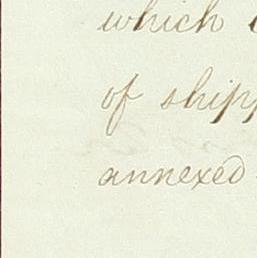 which
of shipp
annexed